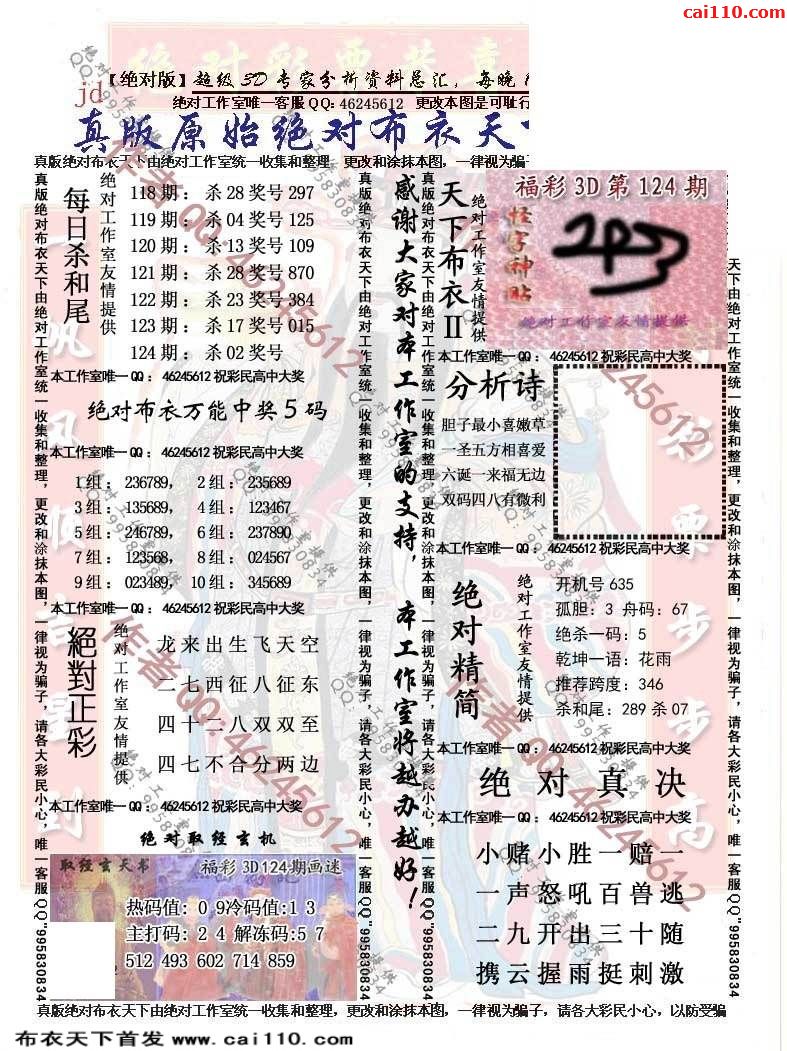 cai110.com
绝对彩票共享
【绝对版】超级3D专家分析资料总汇，每晚
jd
绝对工作室唯一客服QQ:46245612 更改本图是可耻行
真版原始绝对布衣天
真版绝对布衣天下由绝对工作室统一收集和整理，更改和涂抹本图，一律视为骗
每日杀和尾
绝对工作室友情提供
118期：杀28奖号297
119期：杀04奖号125
120期：杀13奖号109
121期：杀28奖号870
122期：杀23奖号384
123期：杀17奖号015
124期：杀02奖号
本工作室唯一QQ：46245612祝彩民高中大奖
绝对布衣万能中奖5码
本工作室唯一QQ：46245612祝彩民高中大奖
1组：236789， 2组：235689
3组：135689， 4组：123467
5组：246789， 6组：237890
7组：123568， 8组：024567
9组：023489， 10组：345689
本工作室唯一QQ：46245612祝彩民高中大奖
絕對正彩
绝对工作室友情提供
龙来出生飞天空
二七西征八征东
四十二八双双至
四七不合分两边
本工作室唯一QQ：46245612祝彩民高中大奖
绝对取经玄机
取经玄天书 福彩3D124期画迷
热码值: 0 9冷码值:1 3
主打码: 2 4 解冻码:5 7
512 493 602 714 859
感谢大家对本工作室的支持，本工作室将越办越好！
天下布衣II
绝对工作室友情提供
福彩3D第124期
怪字神贴
绝对工作室友情提供
本工作室唯一QQ：46245612祝彩民高中大奖
分析诗
胆子最小喜嫩草
一圣五方相喜爱
六诞一来福无边
双码四八有微利
本工作室唯一QQ：46245612祝彩民高中大奖
绝对精简
绝对工作室友情提供
开机号635
孤胆：3 舟码：67
绝杀一码：5
乾坤一语：花雨
推荐跨度：346
杀和尾：289杀07
本工作室唯一QQ：46245612祝彩民高中大奖
绝对真决
本工作室唯一QQ：46245612祝彩民高中大奖
小赌小胜一赔一
一声怒吼百兽逃
二九开出三十随
携云握雨挺刺激
真版绝对布衣天下由绝对工作室统一收集和整理，更改和涂抹本图，一律视为骗子，请各大彩民小心，唯一客服QQ"995830834
真版绝对布衣天下由绝对工作室统一收集和整理，更改和涂抹本图，一律视为骗子，请各大彩民小心，唯一客服QQ"995830834
真版绝对布衣天下由绝对工作室统一收集和整理，更改和涂抹本图，一律视为骗子，请各大彩民小心，唯一客服QQ"995830834
天下由绝对工作室统一收集和整理，更改和涂抹本图，一律视为骗子，请各大彩民小心，唯一客服QQ"995830834
真版绝对布衣天下由绝对工作室统一收集和整理，更改和涂抹本图，一律视为骗子，请各大彩民小心，以防受骗
作者QQ:46245612
布衣天下首发 www.cai110.com